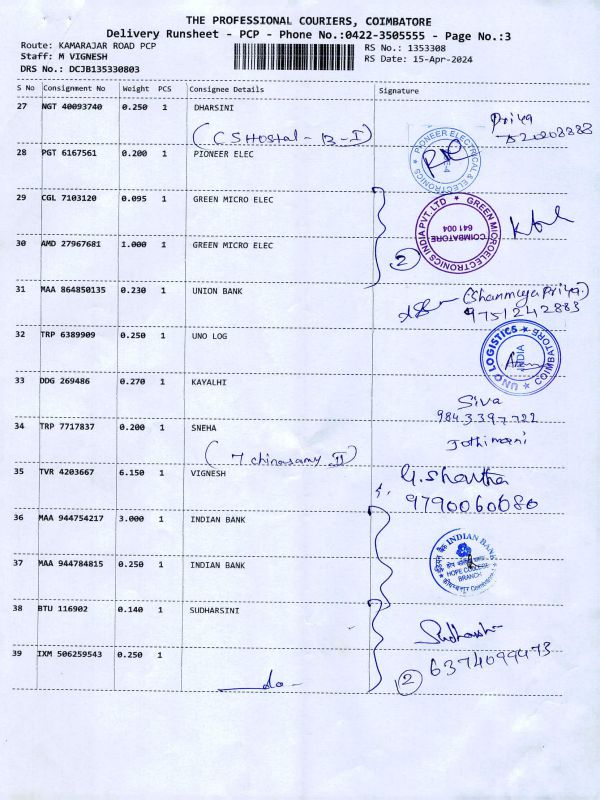 THE PROFESSIONAL COURIERS, COIMBATORE
Delivery Runsheet - PCP - Phone No.:0422-3505555 - Page No.:3
Route: KAMARAJAR ROAD PCP
Staff: M VIGNESH
DRS No.: DCJB135330803
RS No.: 1353308
RS Date: 15-Apr-2024
S No Consignment No Weight PCS Consignee Details Signature
27 NGT 40093740 0.250 1 DHARSINI Priya
(CS Hostal - B-I)
28 PGT 6167561 0.200 1 PIONEER ELEC
PIONEER ELECTRICALS & ELECTRONICS
29 CGL 7103120 0.095 1 GREEN MICRO ELEC
GREEN MICROELECTRONICS INDIA PVT. LTD
COIMBATORE
641 004
30 AMD 27967681 1.000 1 GREEN MICRO ELEC 2
31 MAA 864850135 0.230 1 UNION BANK (Shanmuga Priya.)
9751242883
32 TRP 6389909 0.250 1 UNO LOG
UNO LOGISTICS COIMBATORE
INDIA
33 DDG 269486 0.270 1 KAYALHI Siva
9843397722
34 TRP 7717837 0.200 1 SNEHA Jothimani
(T chinnasamy II)
35 TVR 4203667 6.150 1 VIGNESH G. Shantha
9790060680
36 MAA 944754217 3.000 1 INDIAN BANK
INDIAN BANK
HOPE COLLEGE
BRANCH
37 MAA 944784815 0.250 1 INDIAN BANK
38 BTU 116902 0.140 1 SUDHARSINI Sudharshi
6374099473
39 IXM 506259543 0.250 1 2
do -